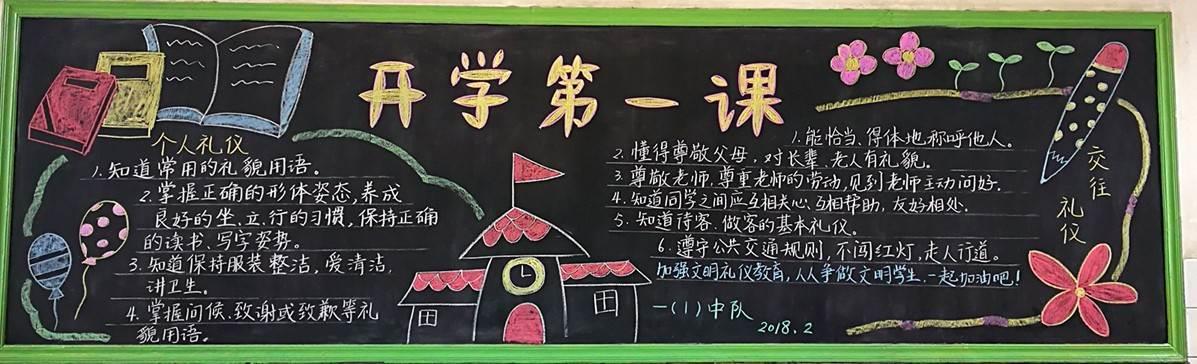 开学第一课
个人礼仪
1.知道常用的礼貌用语。
2.掌握正确的形体姿态,养成
良好的坐、立、行的习惯,保持正确
的读书、写字姿势。
3.知道保持服装整洁,爱清洁,
讲卫生。
4.掌握问候、致谢或致歉等礼
貌用语。
交往
礼仪
1.能恰当、得体地称呼他人。
2.懂得尊敬父母,对长辈、老人有礼貌。
3.尊敬老师,尊重老师的劳动,见到老师主动问好.
4.知道同学之间应互相关心、互相帮助,友好相处.
5.知道待客、做客的基本礼仪。
6.遵守公共交通规则,不闯红灯,走人行道。
加强文明礼仪教育,人人争做文明学生,一起加油吧!
一(1)中队
2018.2